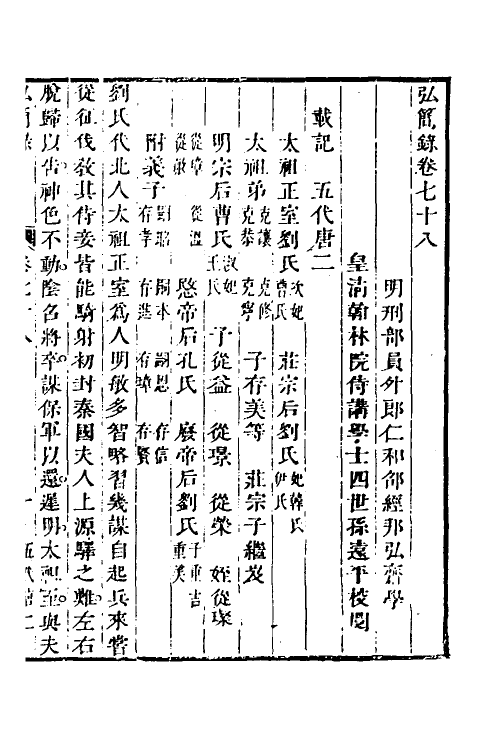 弘簡錄卷七十八
明刑部員外郎仁和邵經邦弘齋學
皇淸翰林院侍講學士四世孫遠平校閱
載記　五代唐二
太祖正室劉氏次妃曹氏　莊宗后劉氏妃韓氏伊氏
太祖弟克讓克恭　克修克寧　子存美等　莊宗子繼岌
明宗后曹氏淑妃王氏　子從益　從璟　從榮　姪從璨
從璋　從溫
從敏　愍帝后孔氏　廢帝后劉氏子重吉重美
附義子嗣昭　嗣本　嗣恩　存信
存孝　存進　存璋　存賢
劉氏代北人太祖正室爲人明敏多智略習幾謀自起兵來嘗
從征伐敎其侍妾皆能騎射初封秦國夫人上源驛之難左右
脫歸以告神色不動陰名將卒謀保軍以還遲明太祖至與夫
弘簡錄　卷七十八　五代唐二